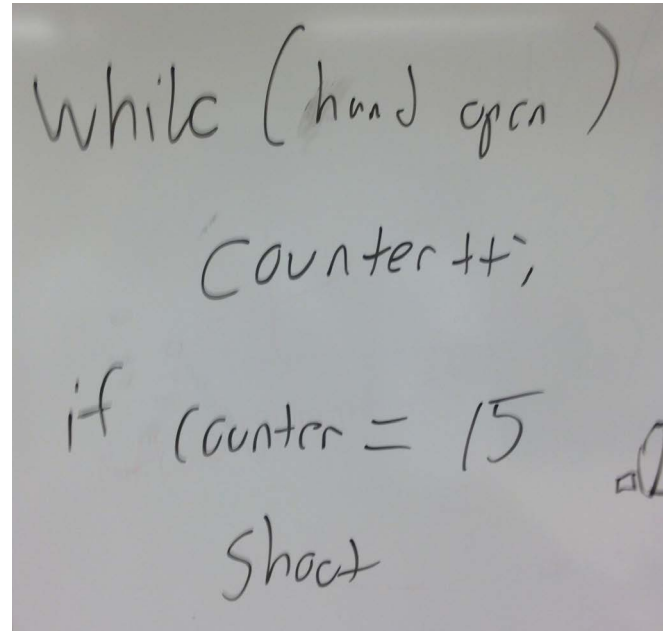 while (hand open)
counter++;
if counter = 15
shoot